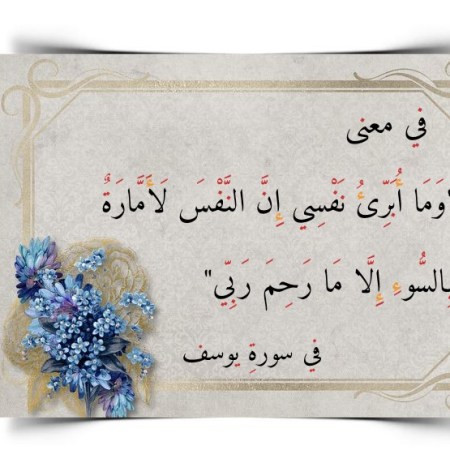 في معنى
"وَمَا أُبَرِّئُ نَفْسِي إِنَّ النَّفْسَ لَأَمَّارَةٌ
بِالسُّوءِ إِلَّا مَا رَحِمَ رَبِّي"
في سورة يوسف